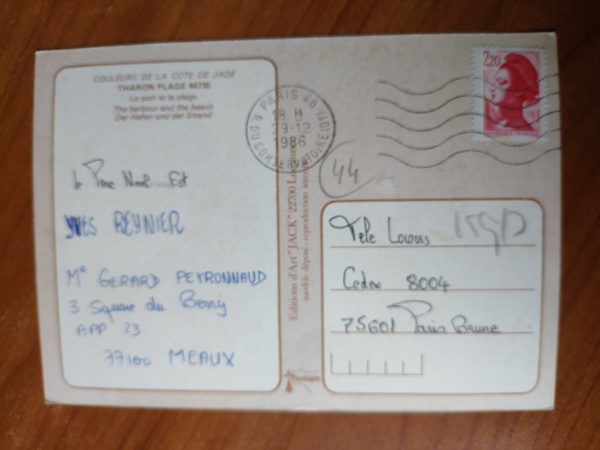 COULEURS DE LA COTE DE JADE
THARON PLAGE 44730
Le port et la plage
The harbour and the beach
Der Hafen und der Strand
le Père Noel Est
YVES REYNIER
Mr GERARD PEYRONNAUD
3 Square du Berry
APP 23
77100 MEAUX
Editions d'Art "JACK" 22700 Louannec
modèle déposé - reproduction interdite
PARIS 46
R. DU CONSERVATOIRE (9E)
18 H
9-12
1986
2,20
44
Tele Loisirs
Cedex 8004
75601 Paris Brune